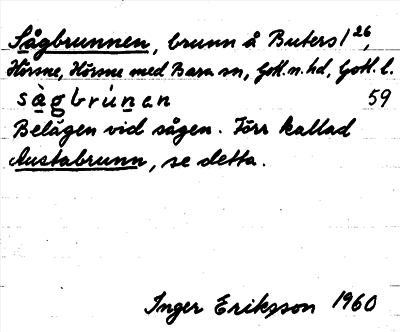 Sågbrunnen, brunn å Buters 1²⁶,
Hörsne, Hörsne med Bara sn, Gotl. n. hd, Gotl. l.
sàgbrúnan 59
Belägen vid sågen. Förr kallad
Austabrunn, se detta.
Inger Eriksson 1960